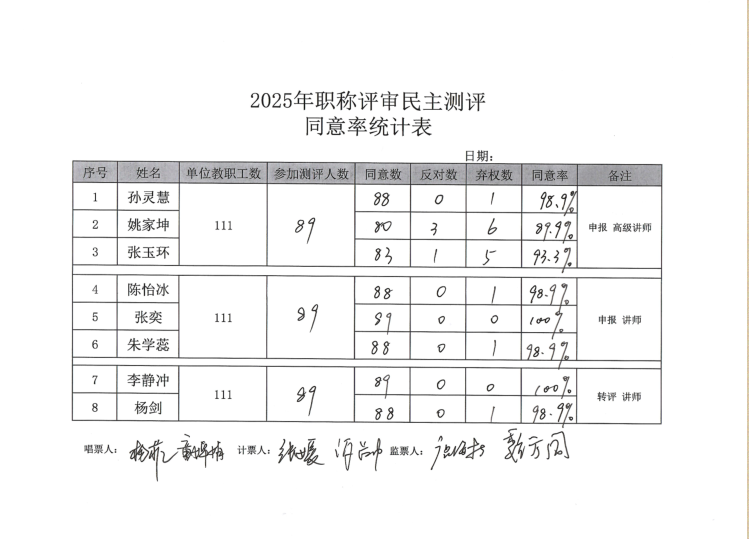 2025年职称评审民主测评
同意率统计表
日期:
序号 姓名 单位教职工数 参加测评人数 同意数 反对数 弃权数 同意率 备注
1 孙灵慧 111 89 88 0 1 98.9% 申报 高级讲师
2 姚家坤 80 3 6 89.9%
3 张玉环 83 1 5 93.3%
4 陈怡冰 111 89 88 0 1 98.9% 申报 讲师
5 张奕 89 0 0 100%
6 朱学蕊 88 0 1 98.9%
7 李静冲 111 89 89 0 0 100% 转评 讲师
8 杨剑 88 0 1 98.9%
唱票人: 计票人: 监票人: